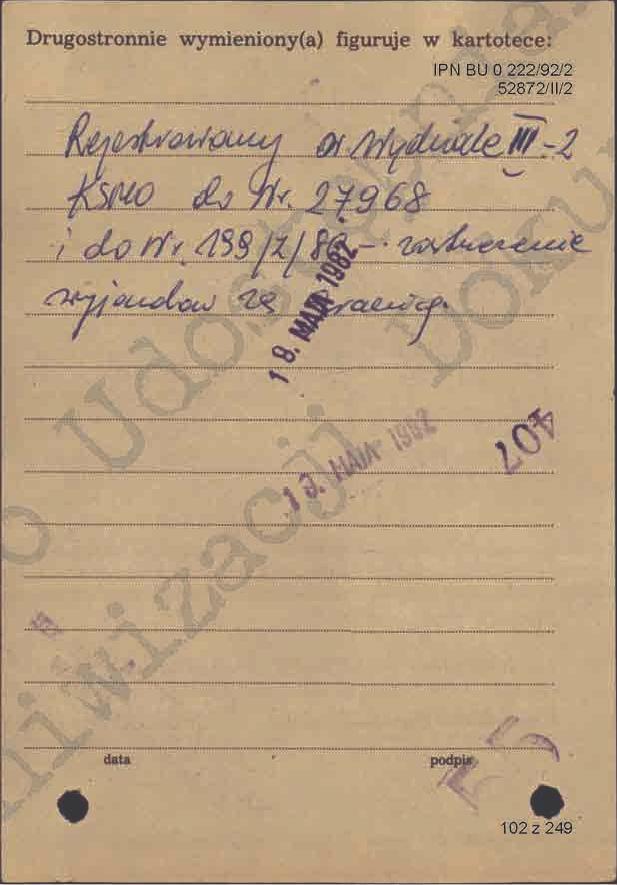 Drugostronnie wymieniony(a) figuruje w kartotece:
IPN BU 0 222/92/2
52872/II/2
Rejestrowany w Wydziale III-2
KSMO do Nr. 27968
i do Nr. 199/Z/80 - zastrzeżenie
wyjazdów za granicę.
18. MAJA 1982
13. MAJA 1982
407
data podpis
55
102 z 249
Udostępniania
i Archiwizacji Dokumentów